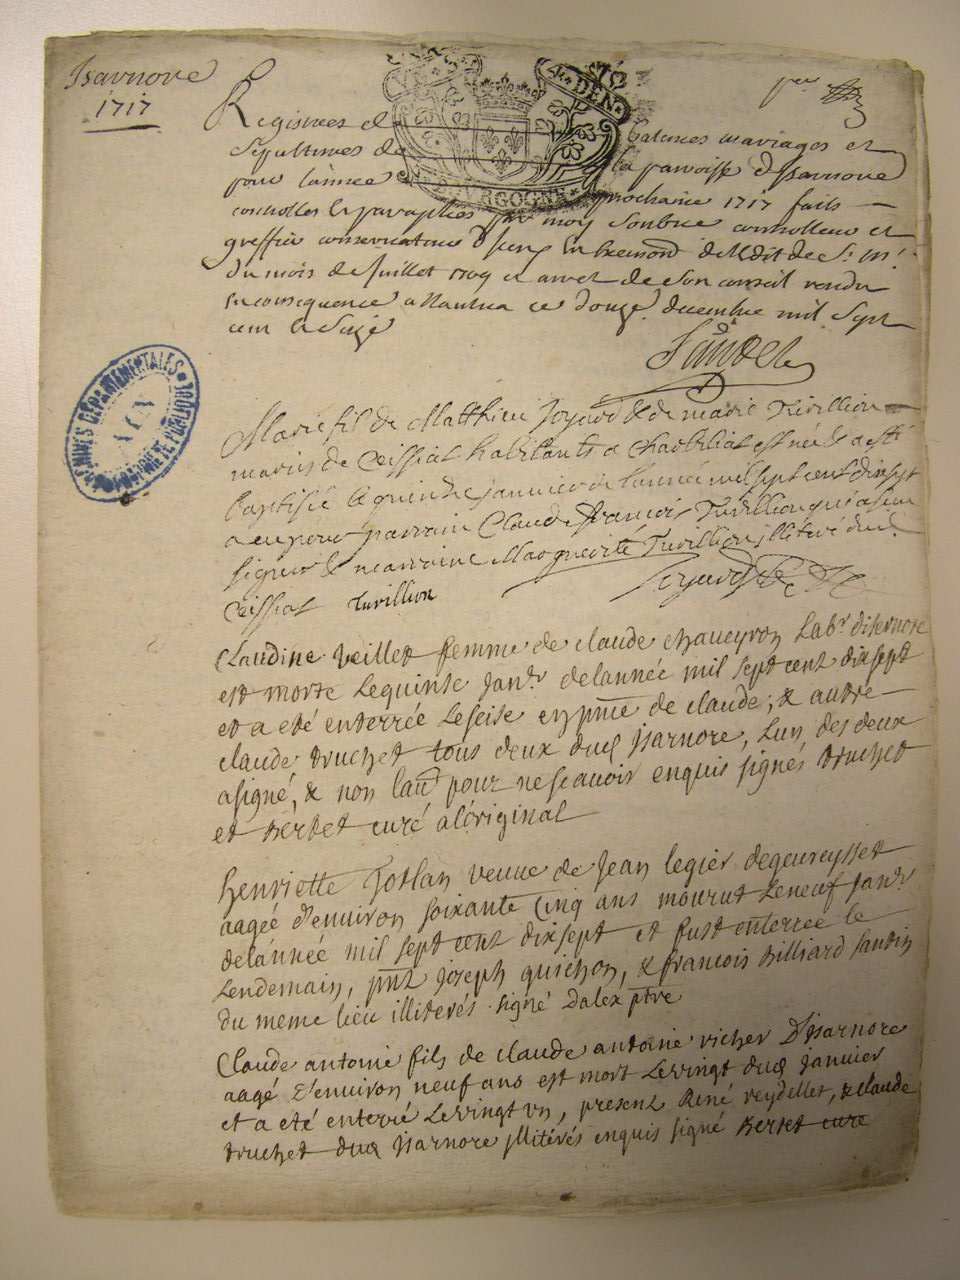 Isarnore
1717
DEN
BOURGOGNE
Registres et batemes mariages et
Sepultures de la paroisse d'Isarnore
pour lannée prochaine 1717 faits
controlles et paraphées par moy controlleur et
greffier conservateur en l'edit de
du mois de Juillet 1709 et arret de son conseil rendu
en consequence a Nantua ce douze decembre mil sept
cent et seize
ARCHIVES DÉPARTEMENTALES
AIN
Marie fil de Matthieu Joyard & de marie Turillion
mariés de Ceissiat habitants a Charbilliat est née & a esté
baptisée le quinzhe janvier de lannée mil sept cent dix sept
a eu pour parrain Claude francois Turillion qui a seu
signer & marraine Marguerite Turillion illiteré dud.
Ceissiat Turillion
Claudine Veillet femme de claude chaveyron Labr disernore
est morte Lequinse janvr delannée mil sept cent dix sept
et a été enterrée Leseise en pnce de claude, & autre
claude truchet tous deux duq jsarnore, Lun des deux
asigné, & non lautr pour nescavoir enquis signés truchet
et Bertet curé alóriginal
henriette Joslan veuve de Jean legier degeureysset
aagée d'environ soixante Cinq ans mourut Leneuf janvr
delánnée mil sept cent dixsept et fust enterrée le
Lendemain, pnts joseph guichon, & francois Billiard
du meme lieu illiterés signé Dalex ptre
Claude antoine fils de claude antoine richer D'jsarnore
aagé d'environ neuf ans est mort Levingt duq janvier
et a eté enterré Levingt vn, present René reydellet, & claude
truchet duq jsarnore jllitérés enquis signé Bertet curé